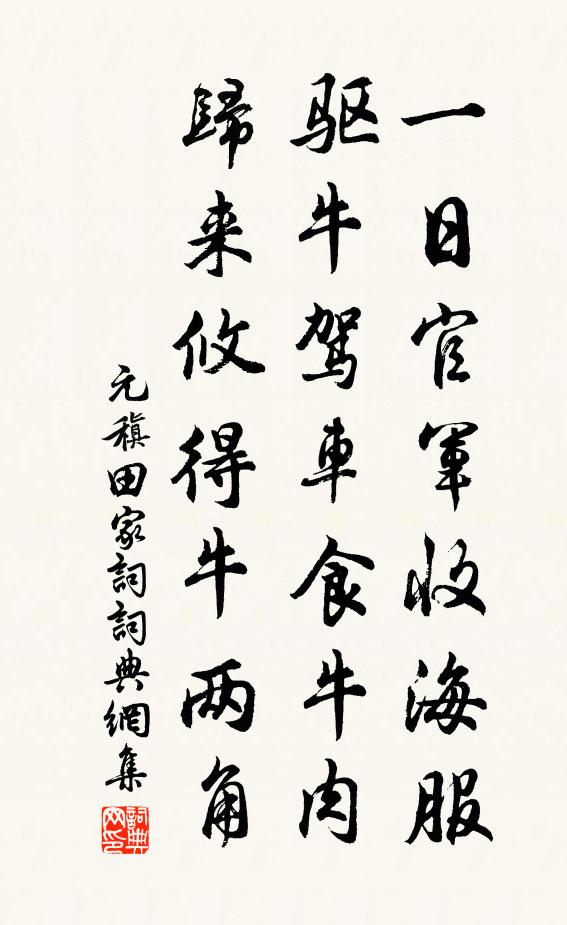 一日官軍收海服
驱牛駕車食牛肉
歸来攸得牛两角
元稹田家詞詞典網集
詞典网印